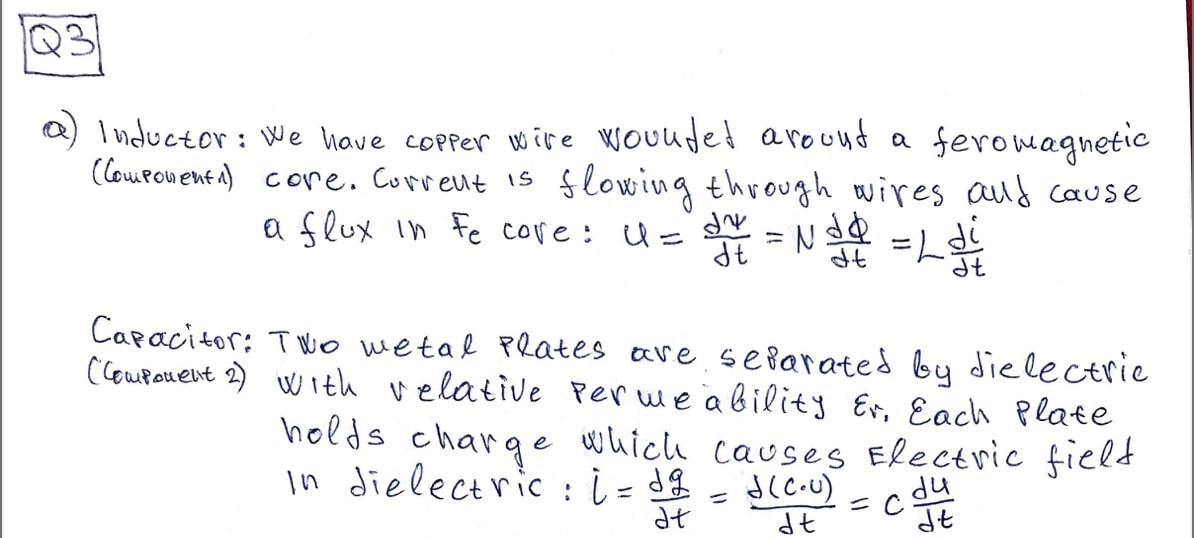 Q3
a) Inductor: We have copper wire wounded around a feromagnetic
(Component 1) core. Current is flowing through wires and cause
a flux in Fe core: u = dψ/dt = N dΦ/dt = L di/dt
Capacitor: Two metal plates are separated by dielectric
(Component 2) with relative permeability εr. Each plate
holds charge which causes Electric field
in dielectric: i = dq/dt = d(C·u)/dt = C du/dt